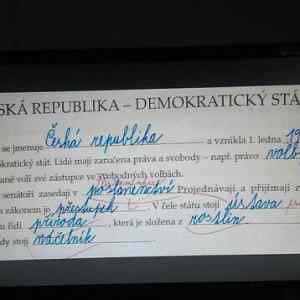 SKÁ REPUBLIKA – DEMOKRATICKÝ STÁ
se jmenuje Česká republika a vznikla 1. ledna 19
okratický stát. Lidé mají zaručena práva a svobody – např. právo volb
aně volí své zástupce ve svobodných volbách.
senátoři zasedají v poslanectví Projednávají a přijímají z
zákonem je přestupek V čele státu stojí ústava
řídí příroda, která je složena z rostlin
dy stojí náčelník